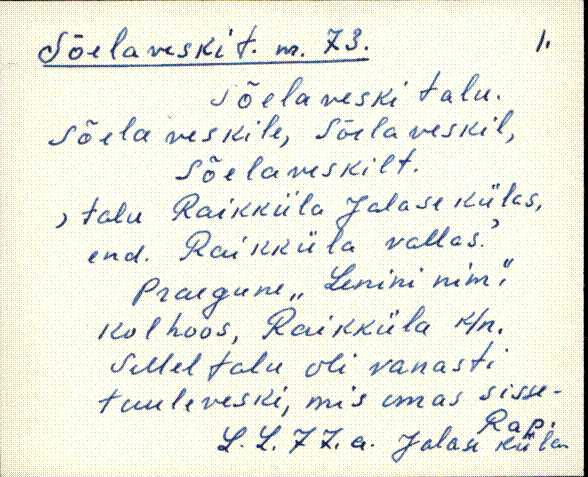 Sõelaveski t. m. 73. 1.
Sõelaveski talu.
Sõela veskile, Sõelaveskil,
Sõelaveskilt.
, talu Raikküla Jalase külas,
end. Raikküla vallas.'
Praegune „Lenini nim."
kolhoos, Raikküla k/n.
Sellel talu oli vanasti
tuuleveski, mis omas sisse-
Rap.
L. L. 77. a. Jalase küla